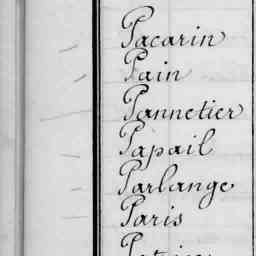 Pacarin
Pain
Pannetier
Papail
Parlange
Paris